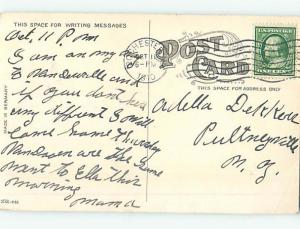 THIS SPACE FOR WRITING MESSAGES
Oct. 11 P.m
I am on my way
to Dansville and
if you don't hear
any different I will
come home Thursday
Dansville are the same
went to Ella this
morning
mama
MADE IN GERMANY
ROCHESTER
OCT 11
6-PM
1910
POST CARD
THIS SPACE FOR ADDRESS ONLY
U.S. POSTAGE
ONE CENT
Adella DeKker
Pultneyville
N.Y.